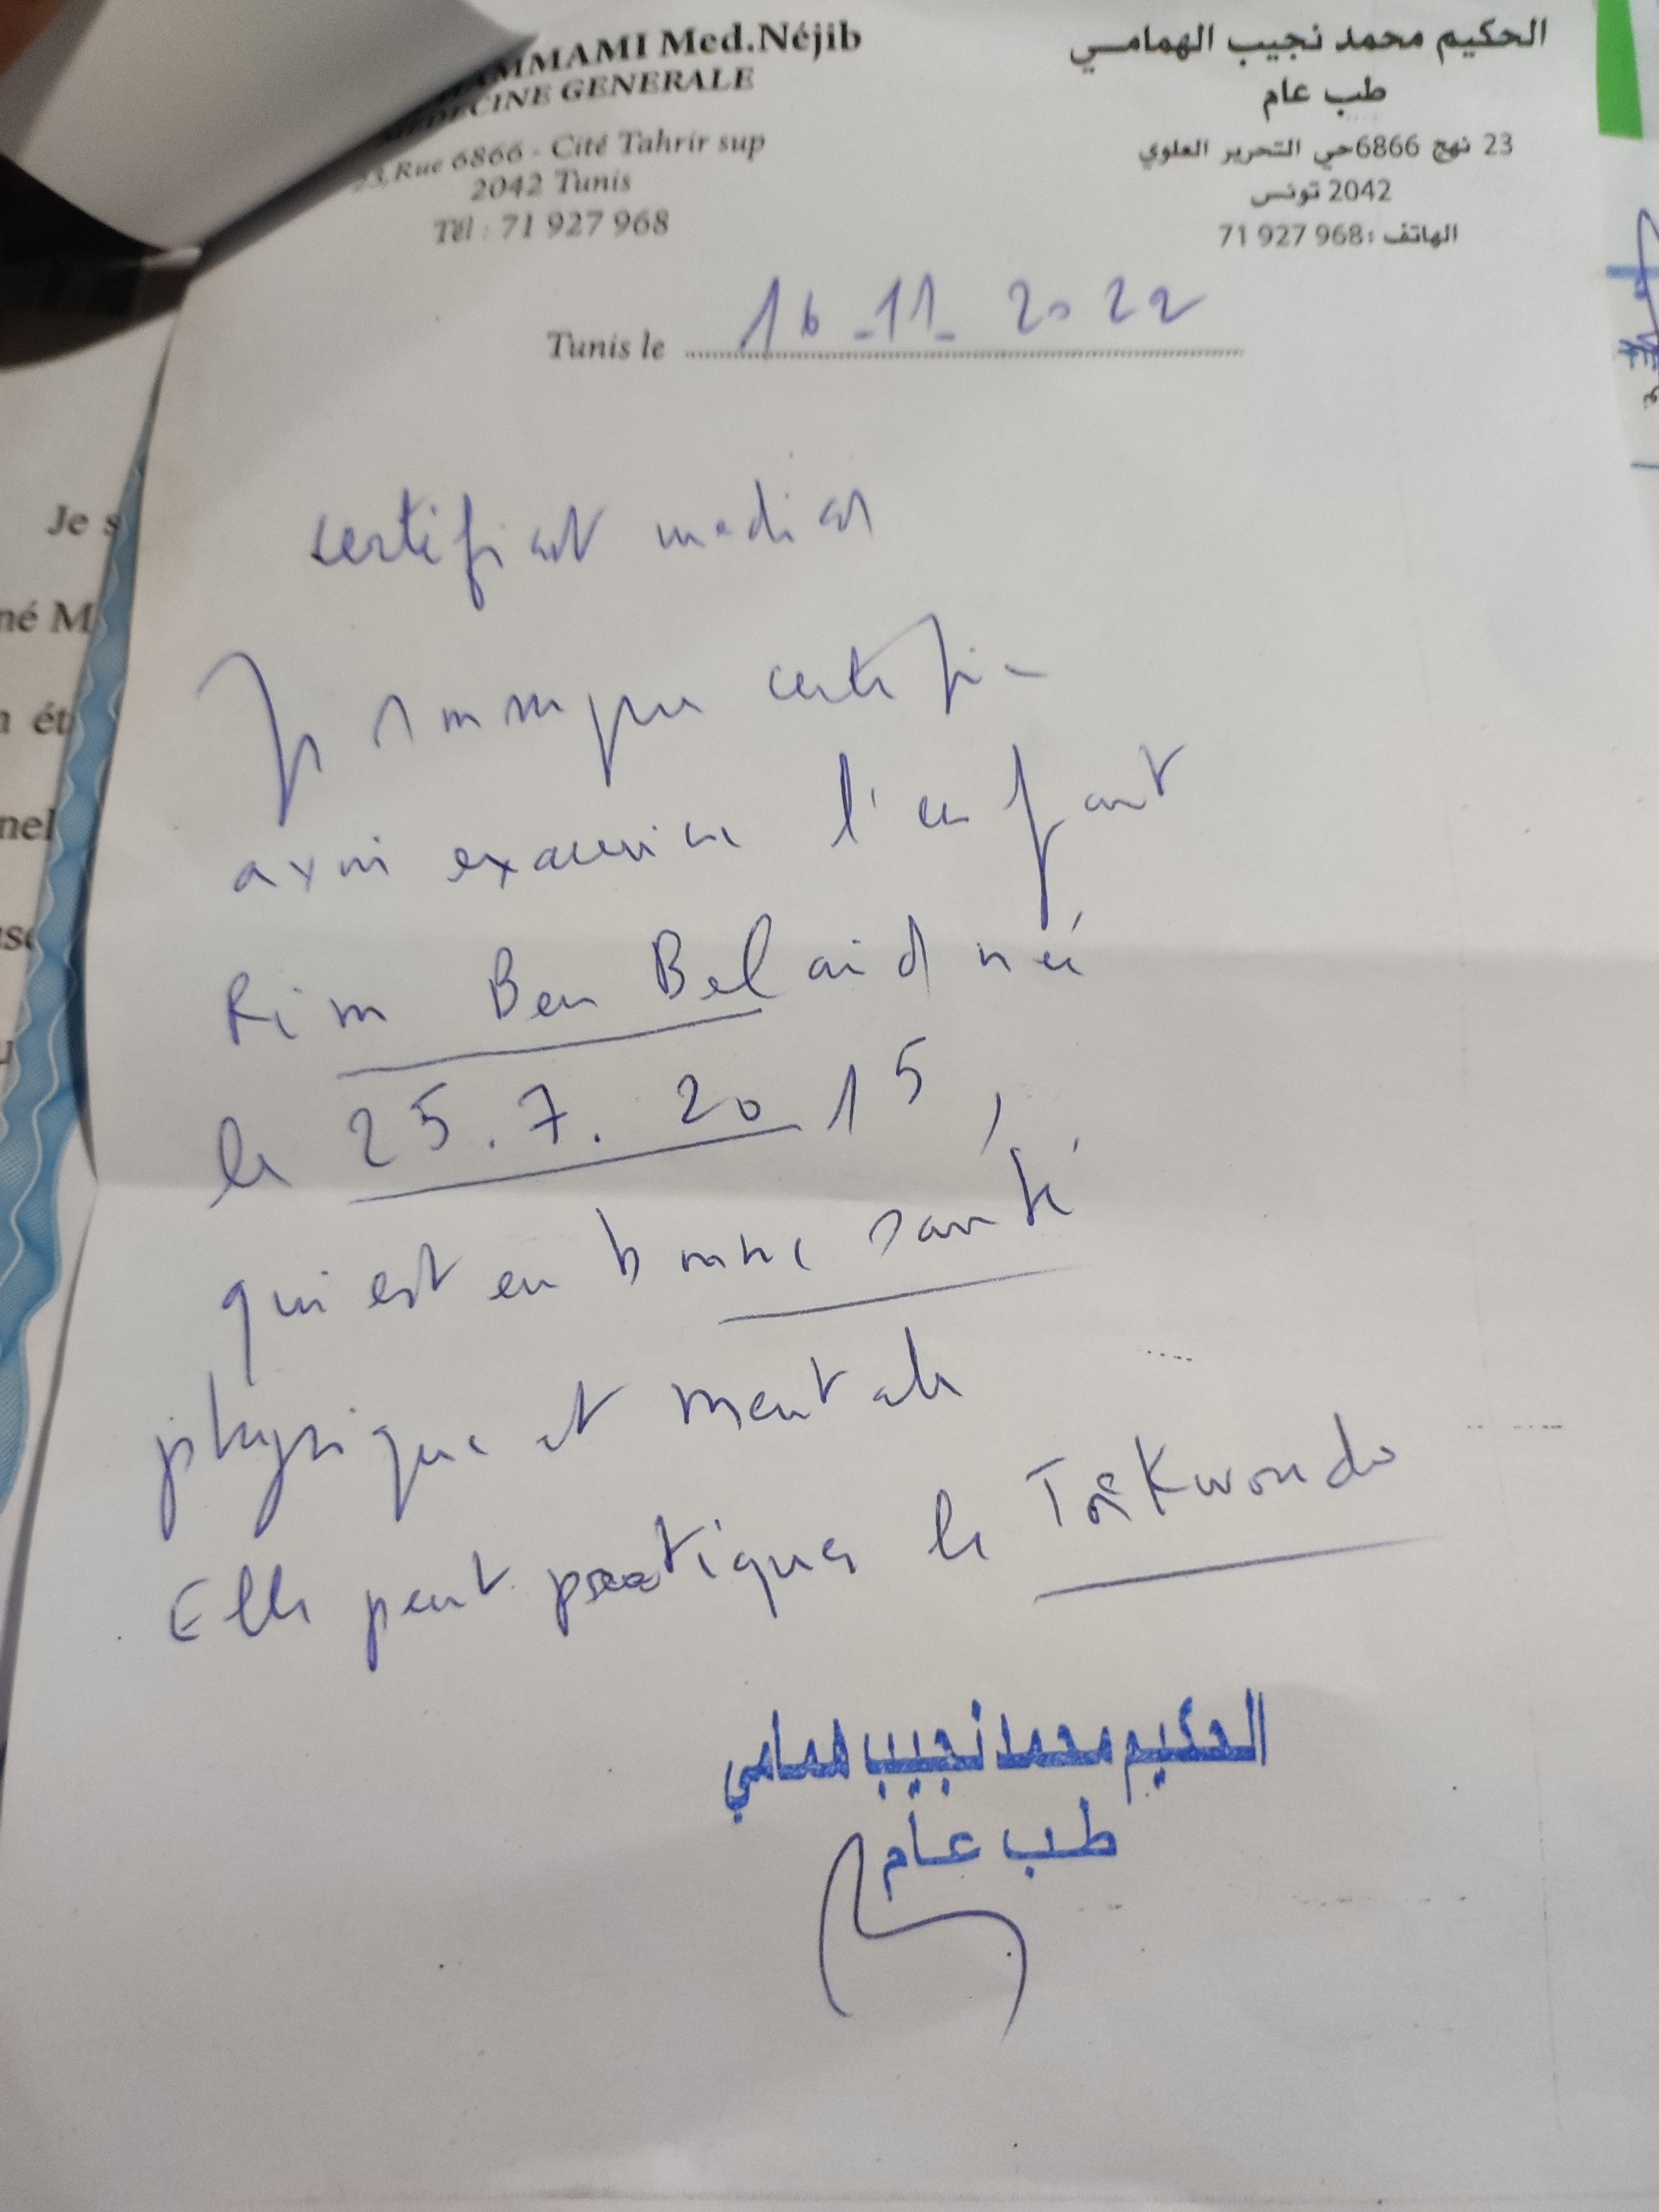 HAMMAMI Med.Néjib
MEDECINE GENERALE
23, Rue 6866 - Cité Tahrir sup
2042 Tunis
Tél : 71 927 968
الحكيم محمد نجيب الهمامي
طب عام
23 نهج 6866 حي التحرير العلوي
2042 تونس
الهاتف : 71 927 968
Tunis le 16-11-2022
certificat medical
Je soussigne certifie
avoir examine l'enfant
Rim Ben Belaid née
le 25.7.2015,
qui est en bonne santé
physique et mentale
Elle peut pratiquer le Taekwondo
الحكيم محمد نجيب همامي
طب عام
Je s
né M
n ét
nel